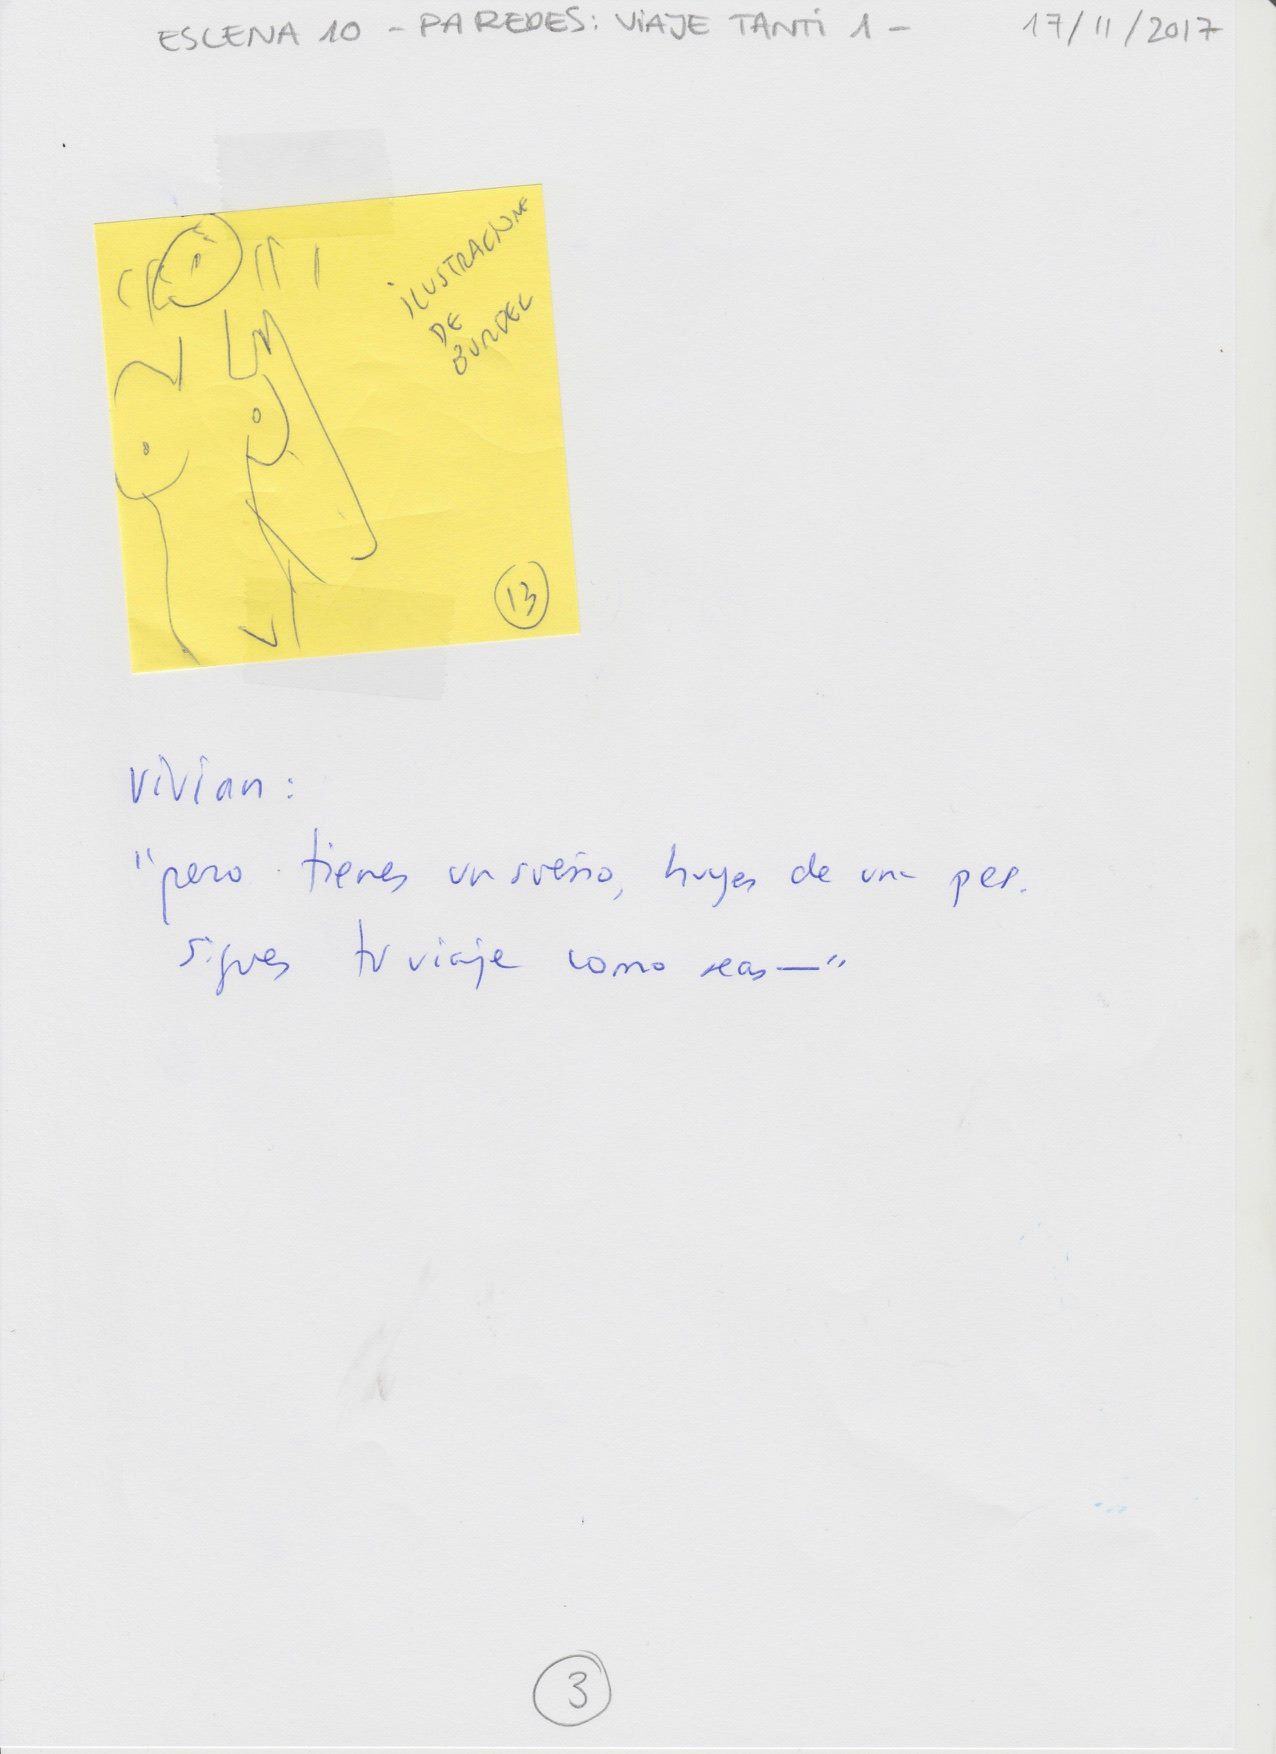 ESCENA 10 - PAREDES: VIAJE TANTI 1 - 17/11/2017
ILUSTRACIONE
DE
BURDEL
13
Vivian:
"pero tienes un sueño, huyes de una pes.
sigues tu viaje como seas—"
3